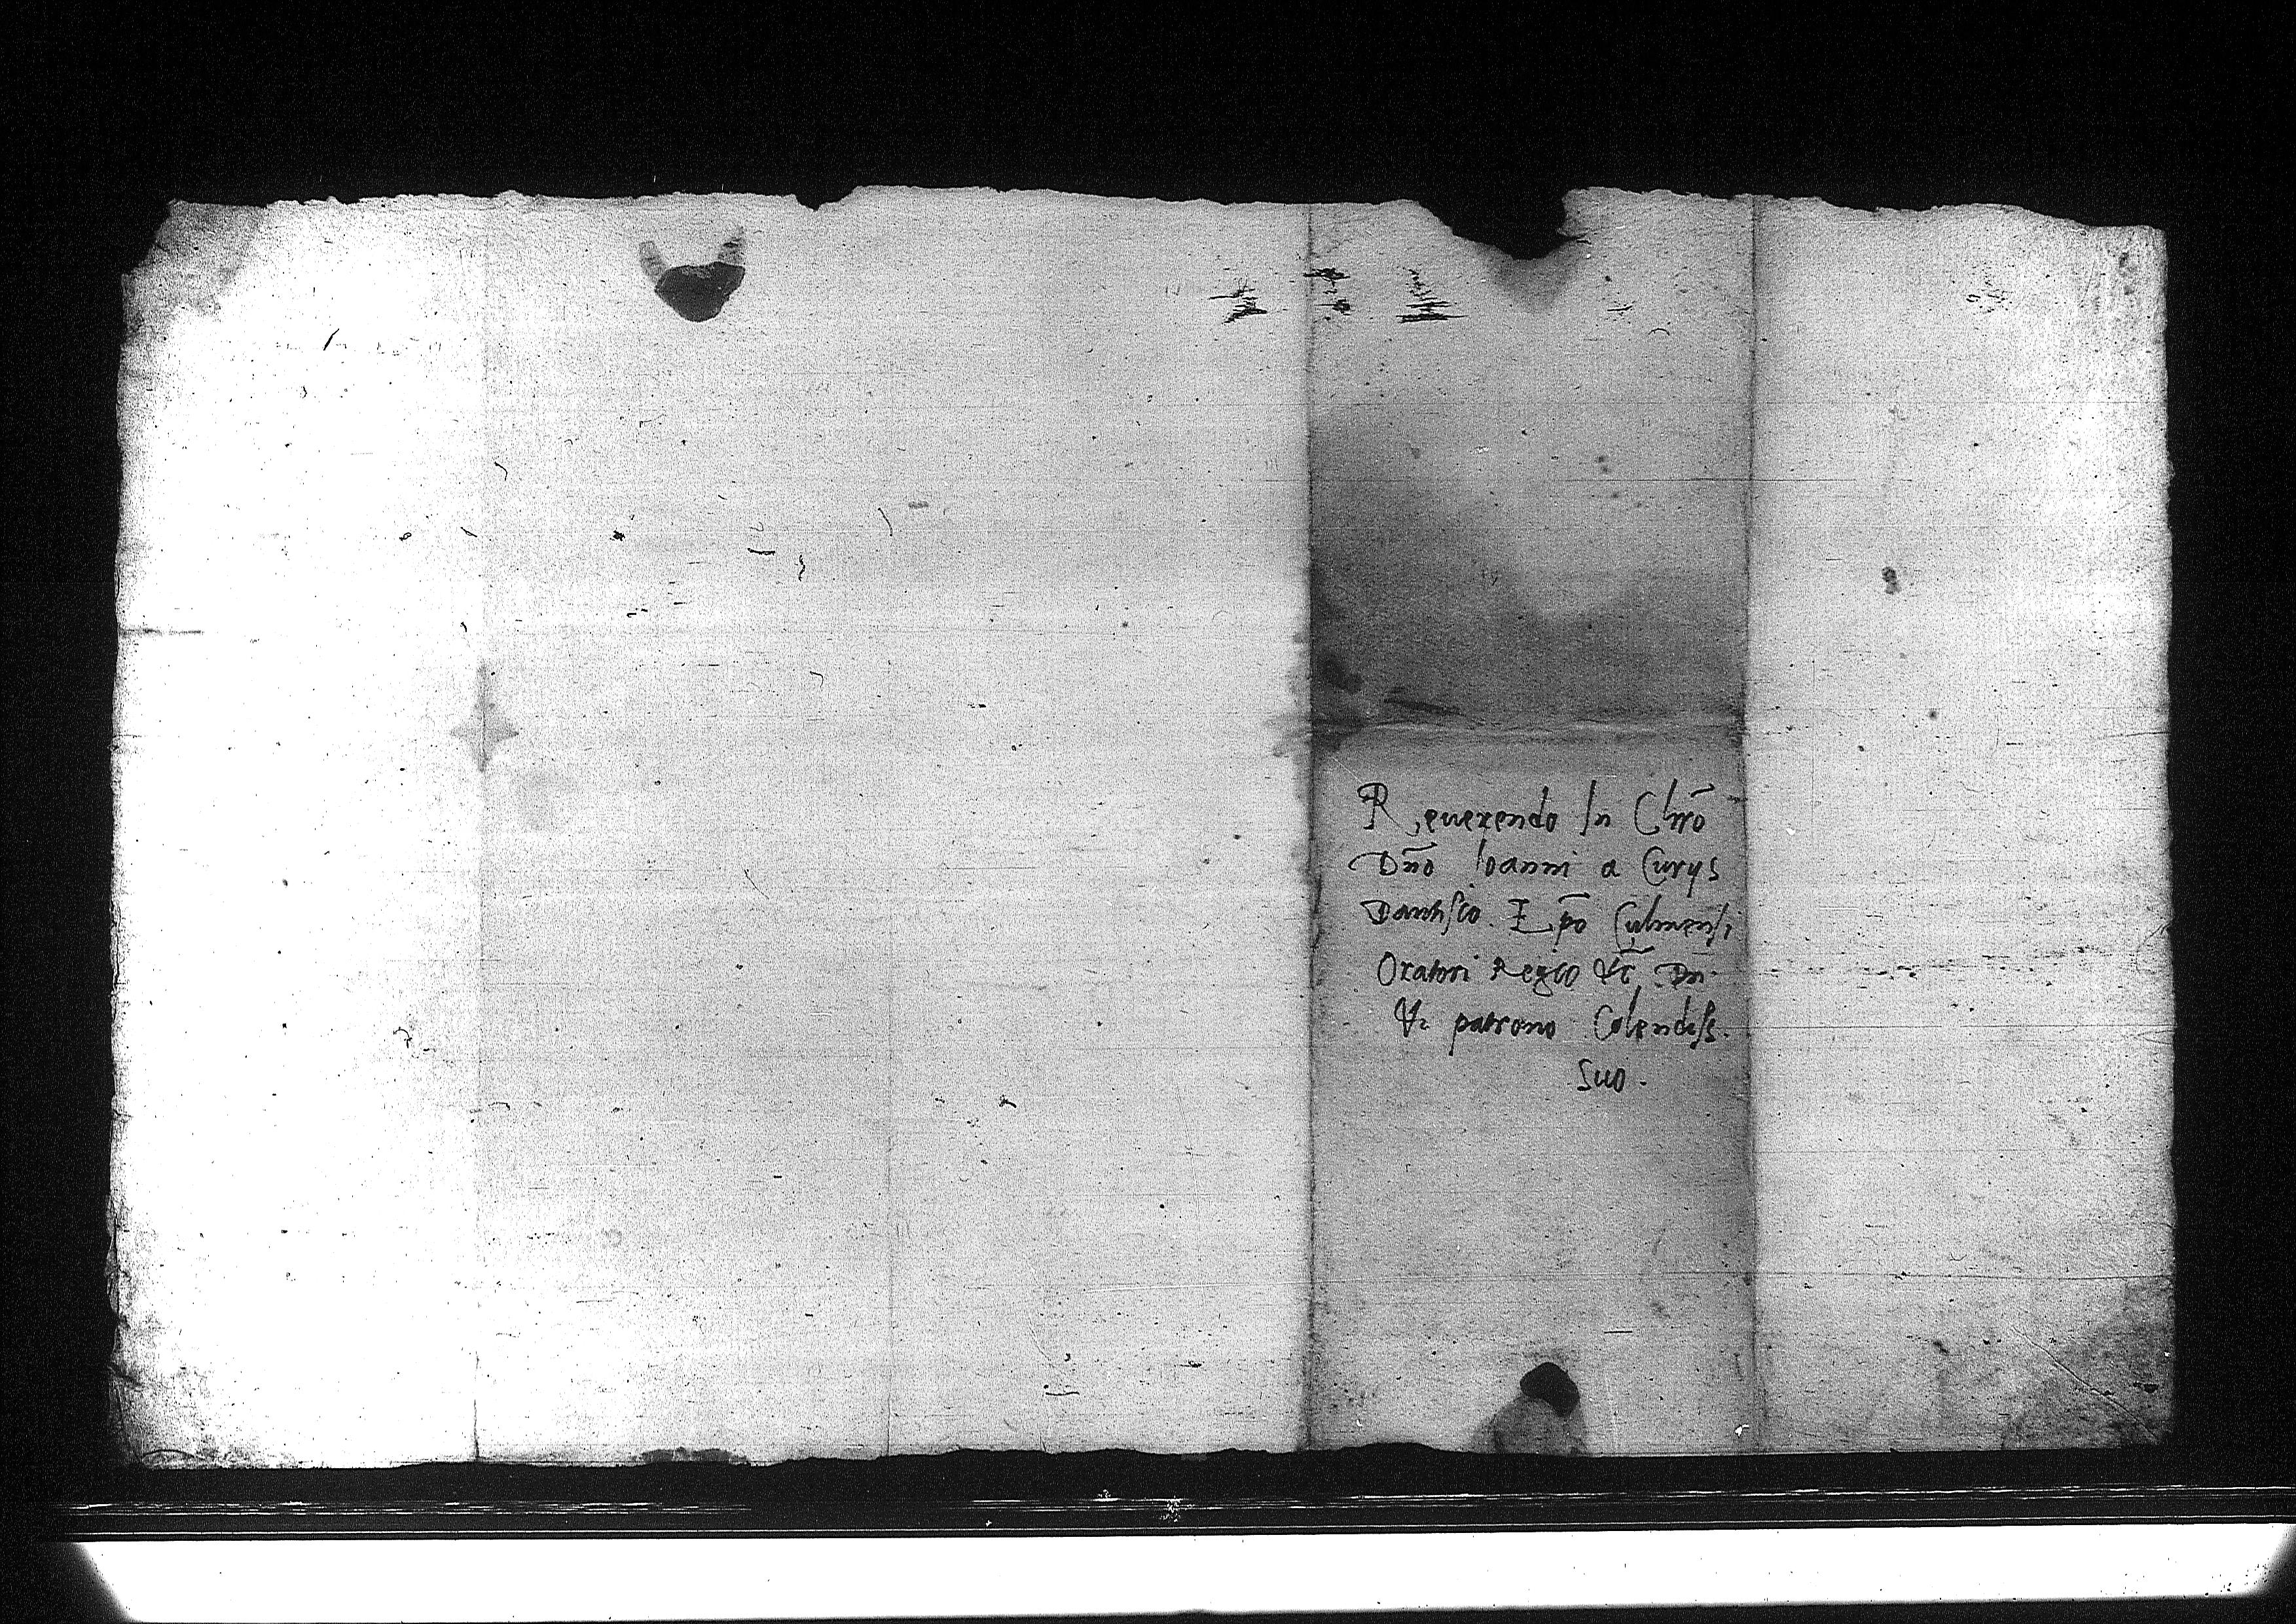 Reuerendo In Chr̄o
Dn̄o Ioanni a Curijs
Dantisco. Ep̄o Culmensi
Oratori Regio &c̄ Dn̄
& patrono Colendiss.
Suo.